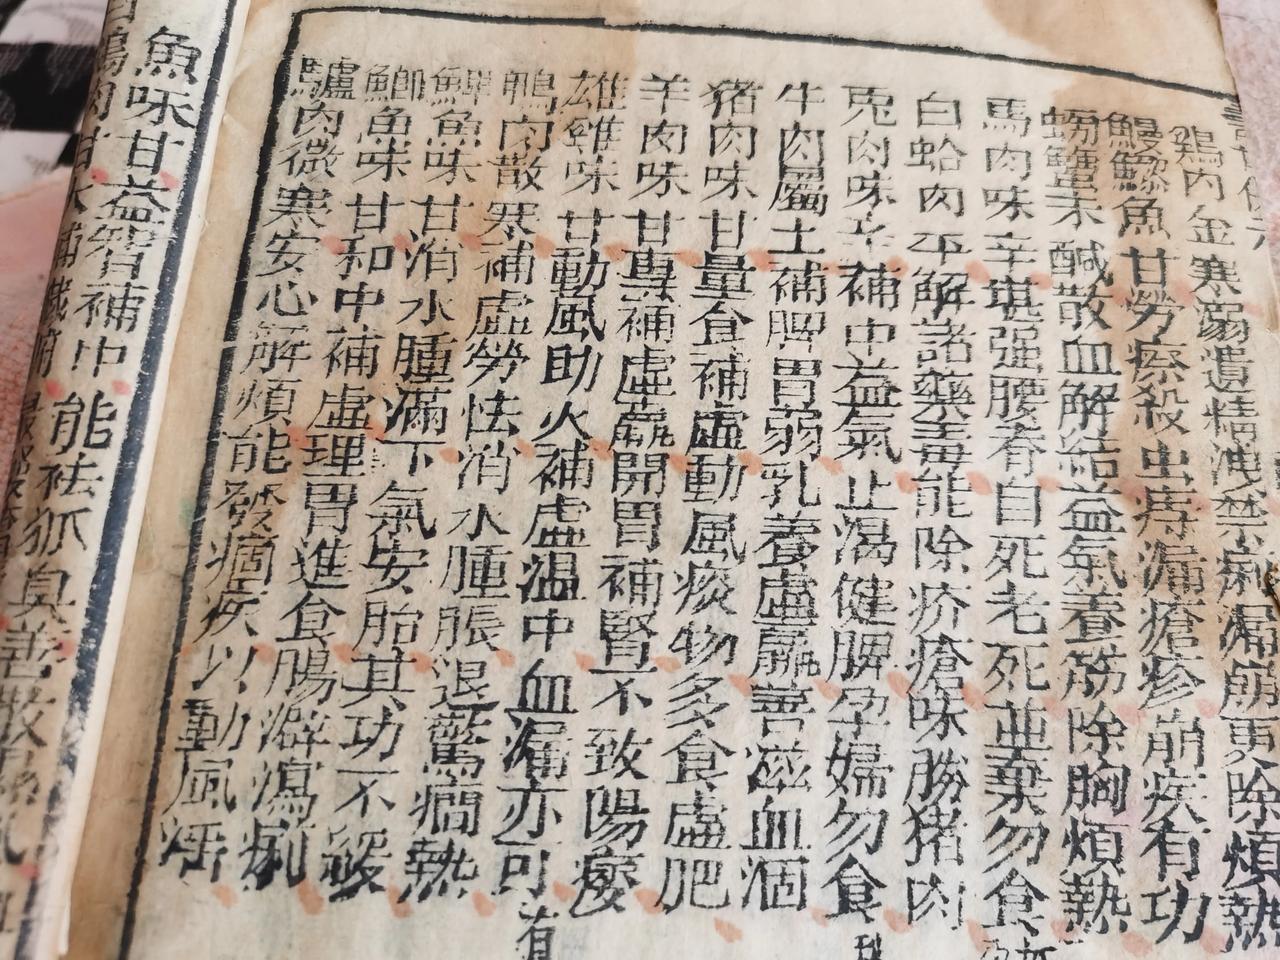 鷄内金寒溺遺精洩禁痢漏崩更除煩熱
鰻鱺魚甘勞瘵殺虫痔漏瘡疹崩疾有功
螃蠏味鹹散血解結益氣養筋除胸煩熱
馬肉味辛堪强腰脊自死老死並棄勿食
白蛤肉平解諸藥毒能除疥瘡味勝猪肉
兎肉味辛補中益氣止渴健脾孕婦勿食
牛肉屬土補脾胃弱乳養虛羸善滋血涸
猪肉味甘量食補虛動風痰物多食虛肥
羊肉味甘專補虛羸開胃補腎不致陽痿
雄雞味甘動風助火補虛温中血漏亦可
鴨肉散寒補虛勞怯消水腫脹退驚癇熱
鯉魚味甘消水腫滿下氣安胎其功不緩
鯽魚味甘和中補虛理胃進食腸澼瀉痢
驢肉微寒安心解煩能發痼疾以動風淫
魚味甘益智補中能袪狐臭善散濕